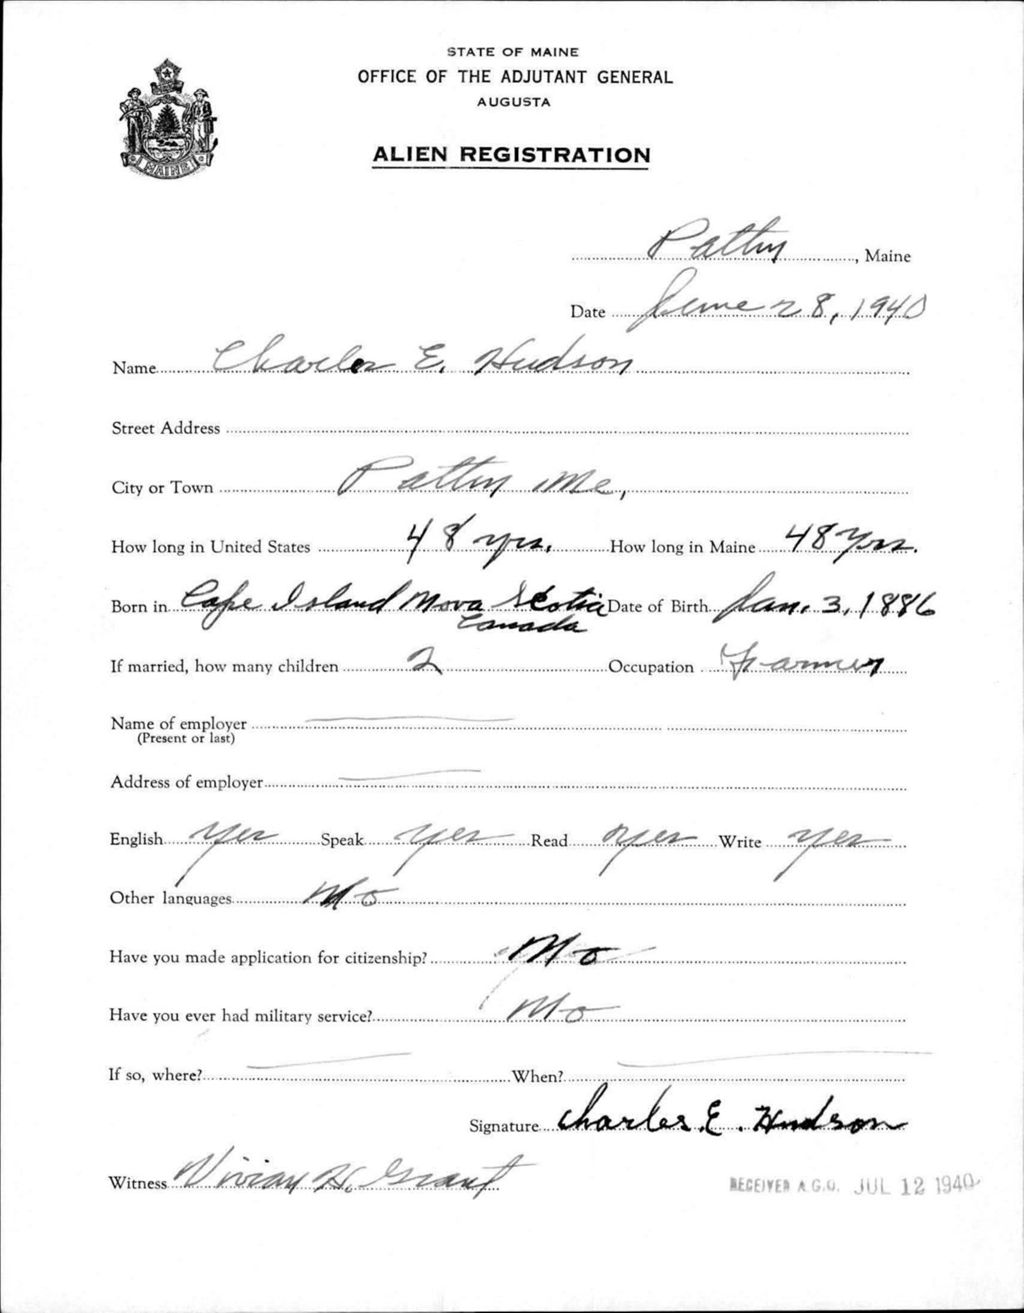 STATE OF MAINE
OFFICE OF THE ADJUTANT GENERAL
AUGUSTA
ALIEN REGISTRATION
MAINE
Patten, Maine
Date June 28, 1940
Name Charles E. Hudson
Street Address
City or Town Patten Me,
How long in United States 48 yrs. How long in Maine 48 Yrs.
Born in Cape Island Nova Scotia Date of Birth Jan. 3, 1886
Canada
If married, how many children 2 Occupation Farmer
Name of employer
(Present or last)
Address of employer
English Yes Speak yes Read yes Write yes
Other languages No
Have you made application for citizenship? No
Have you ever had military service? No
If so, where? When?
Signature Charles. E. Hudson
Witness Vivian H. Grant
RECEIVED A.G.O. JUL 12 1940